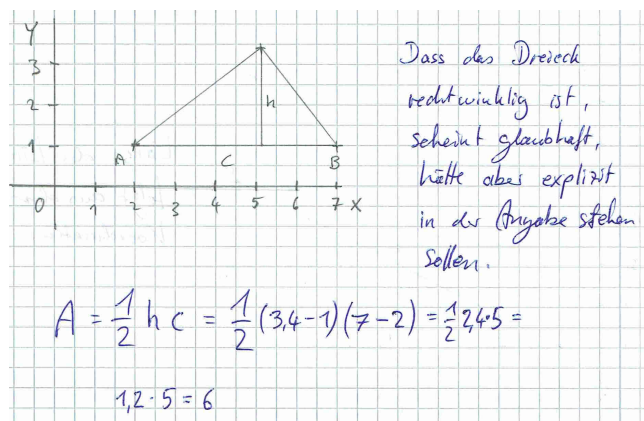 Y
3
2
1
h
A
C
B
0 1 2 3 4 5 6 7 X
Dass das Dreieck
rechtwinklig ist,
scheint glaubhaft,
hätte aber explizit
in der Angabe stehen
sollen.
A = 1/2 h c = 1/2 (3,4-1)(7-2) = 1/2 2,4·5 =
1,2·5 = 6